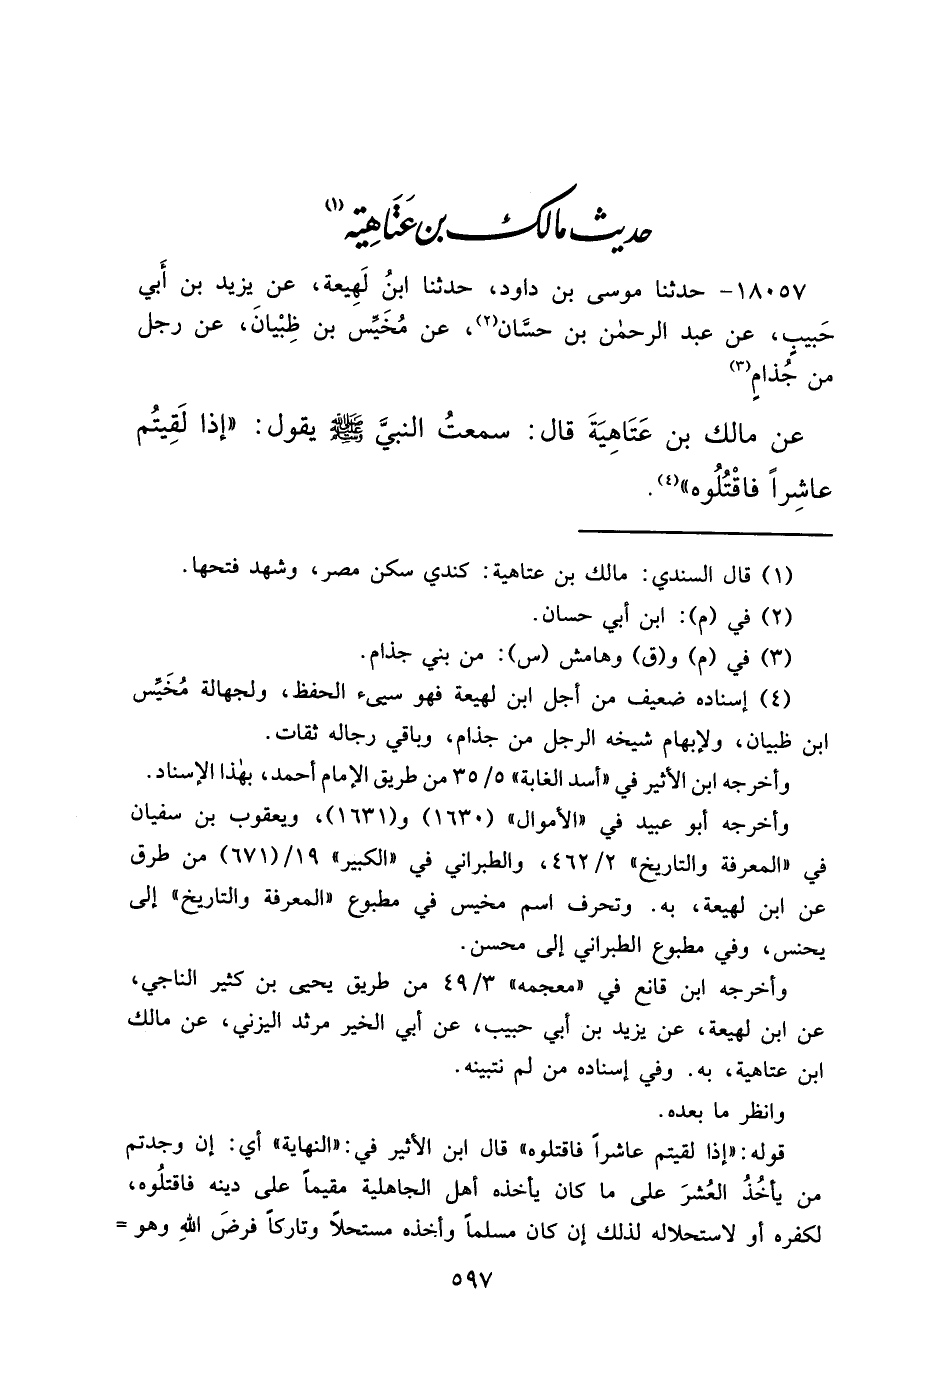 حديث مالك بن عَتَاهِية (١)
١٨٠٥٧- حدثنا موسى بن داود، حدثنا ابنُ لَهِيعة، عن يزيد بن أَبي
حَبيبٍ، عن عبد الرحمٰن بن حسَّان(٢)، عن مُخَيِّس بن ظِبْيانَ، عن رجل
من جُذامٍ(٣)
عن مالك بن عَتَاهِيَةَ قال: سمعتُ النبيَّ ﷺ يقول: «إذا لَقِيتُم
عاشِراً فاقْتُلُوه»(٤).
(١) قال السندي: مالك بن عتاهية: كندي سكن مصر، وشهد فتحها.
(٢) في (م): ابن أبي حسان.
(٣) في (م) و(ق) وهامش (س): من بني جذام.
(٤) إسناده ضعيف من أجل ابن لهيعة فهو سيىء الحفظ، ولجهالة مُخَيِّس
ابن ظبيان، ولإبهام شيخه الرجل من جذام، وباقي رجاله ثقات.
وأخرجه ابن الأثير في «أسد الغابة» ٥/ ٣٥ من طريق الإمام أحمد، بهٰذا الإسناد.
وأخرجه أبو عبيد في «الأموال» (١٦٣٠) و(١٦٣١)، ويعقوب بن سفيان
في «المعرفة والتاريخ» ٢/ ٤٦٢، والطبراني في «الكبير» ١٩/(٦٧١) من طرق
عن ابن لهيعة، به. وتحرف اسم مخيس في مطبوع «المعرفة والتاريخ» إلى
يحنس، وفي مطبوع الطبراني إلى محسن.
وأخرجه ابن قانع في «معجمه» ٣/ ٤٩ من طريق يحيى بن كثير الناجي،
عن ابن لهيعة، عن يزيد بن أبي حبيب، عن أبي الخير مرثد اليزني، عن مالك
ابن عتاهية، به. وفي إسناده من لم نتبينه.
وانظر ما بعده.
قوله: «إذا لقيتم عاشراً فاقتلوه» قال ابن الأثير في: «النهاية» أي: إن وجدتم
من يأخُذُ العُشرَ على ما كان يأخذه أهل الجاهلية مقيماً على دينه فاقتلُوه،
لكفره أو لاستحلاله لذلك إن كان مسلماً وأخذه مستحلاً وتاركاً فرضَ اللهِ وهو =
٥٩٧